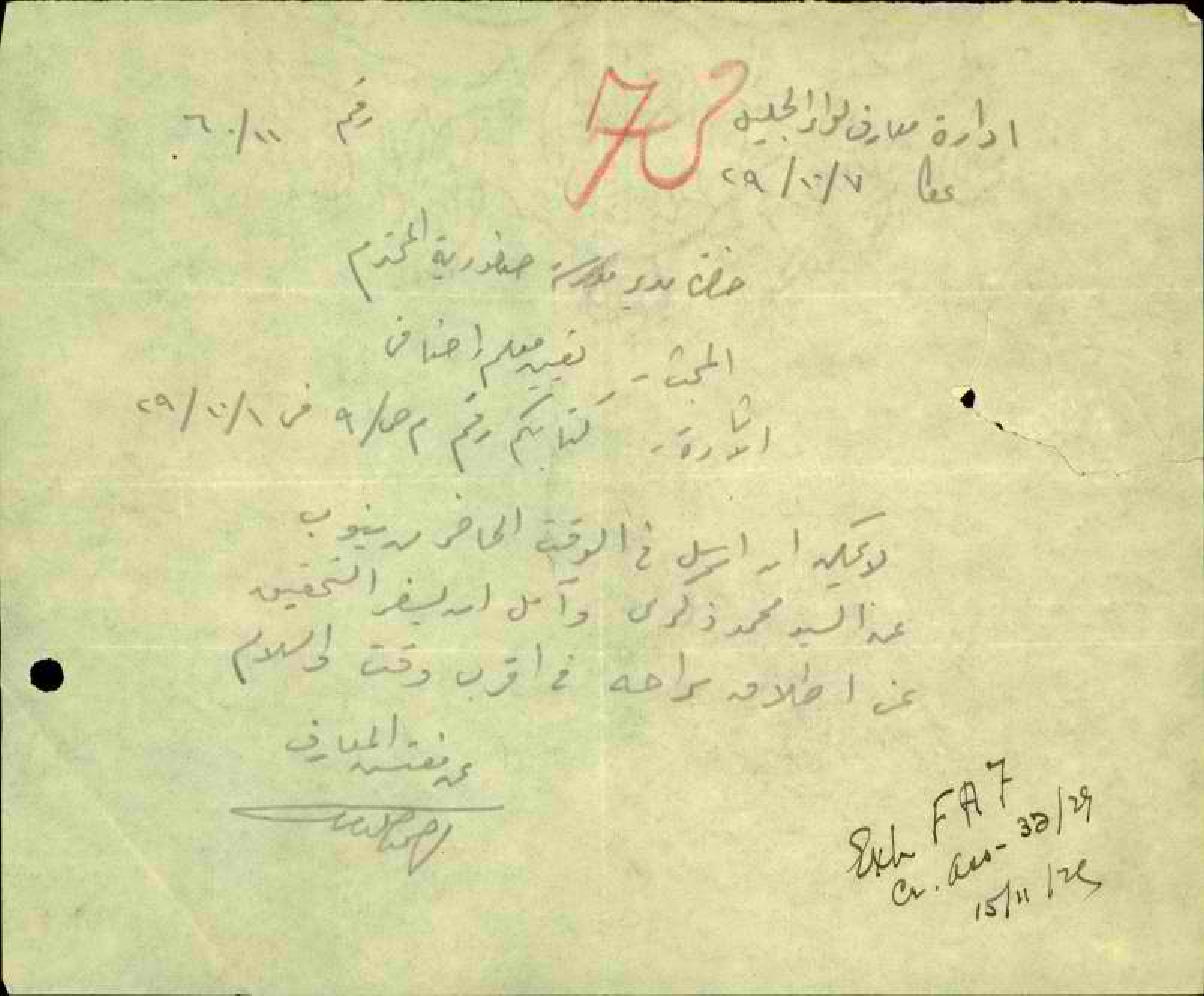 ادارة معارف لواء الجليل
رقم ٦٠/١١
عكا ٢٩/١٠/٧
حضرة مدير مدرسة صفورية المحترم
المبحث - تعيين معلم اضافي
الاشارة - كتابكم رقم م ص/٩ في ٢٩/١٠/١
لا يمكن ان ارسل في الوقت الحاضر من ينوب
عن السيد محمد زكري وآمل ان يسفر التحقيق
عن اطلاق سراحه في اقرب وقت والسلام
عن مفتش المعارف
Exh FA 7
Cr. Ass- 32/29
15/11/29